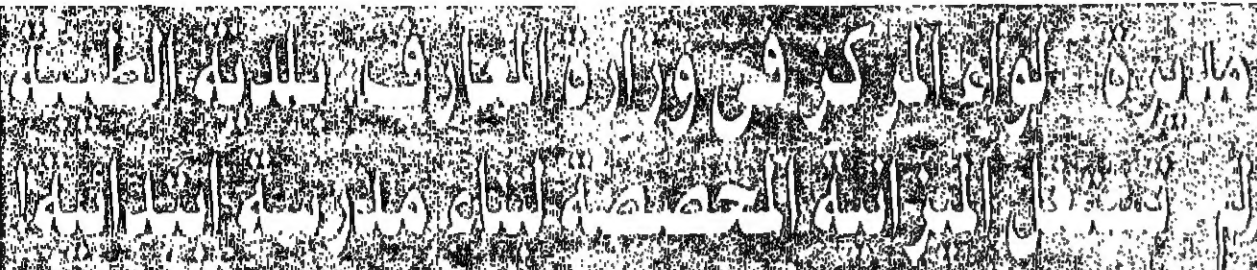 مديرة لواء المركز في وزارة المعارف: بلدية الطيبة
لم تستغل الميزانية المخصصة لبناء مدرسة ابتدائية!